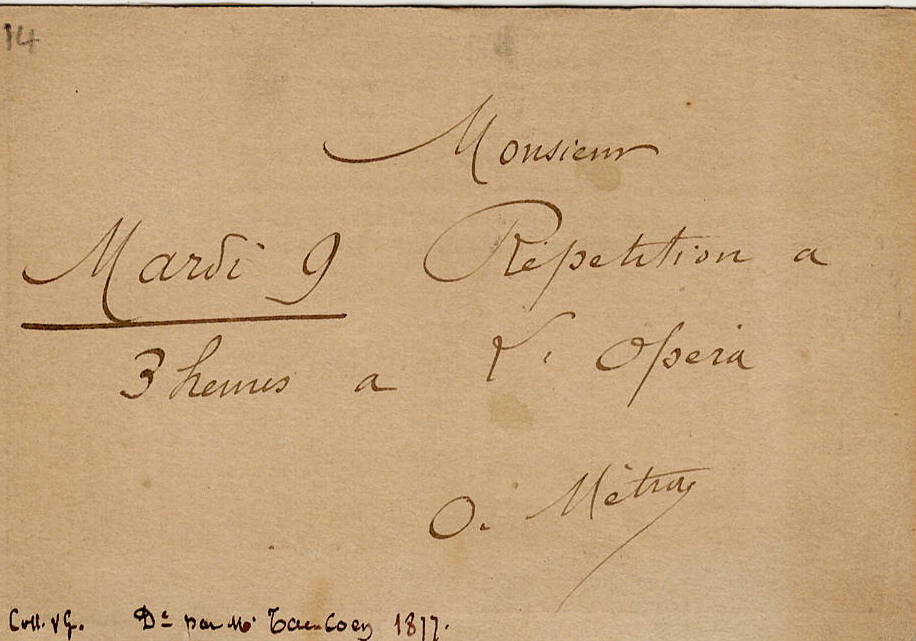 14
Monsieur
Mardi 9 Répetition a
3 heures a l' Opera
O. Métra
Coll. YG. Dé par Mr 1877.